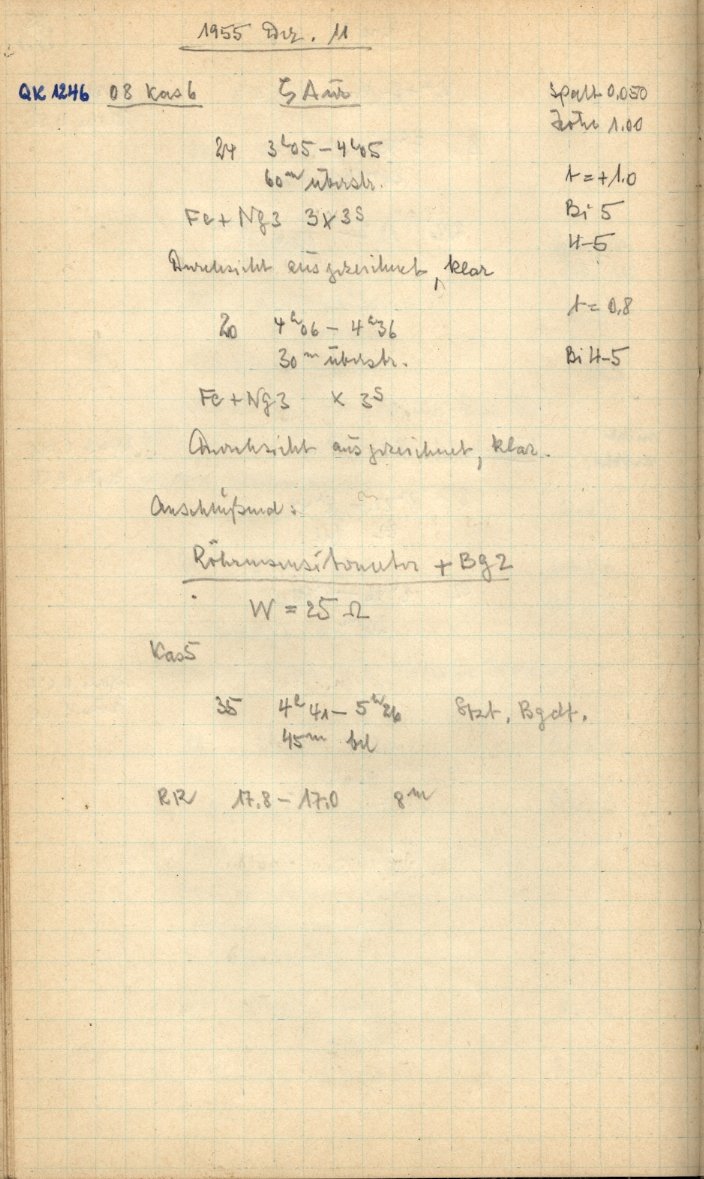 1955 Dez. 11
QK 1246 08 Kas 6 ζ Aur Spalt 0,050
Höhe 1.00
24 3ʰ05 – 4ʰ05
60ᵐ überstr. t = +1.0
Fe + Ng3 3 x 3ˢ Bi 5
4-5
Durchsicht ausgezeichnet, klar
t = 0,8
20 4ʰ06 – 4ʰ36
30ᵐ überstr. Bi 4-5
Fe + Ng3 x 3ˢ
Durchsicht ausgezeichnet, klar.
Anschließend:
Röhrensensitometer + Bg2
W = 25 Ω
Kas5
35 4ʰ41 – 5ʰ26 Stzt, Bgdf.
45ᵐ bel
RR 17,8 – 17,0 8ᵐ